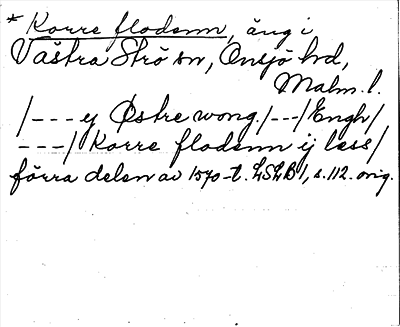 * Korre flodenn, äng i
Västra Strö sn, Onsjö hd,
Malm. l.
/--- y Østre wong /---/ Engh /
---/ Korre flodenn ij less /
förra delen av 1570-t. LSLB 1, s. 112. orig.